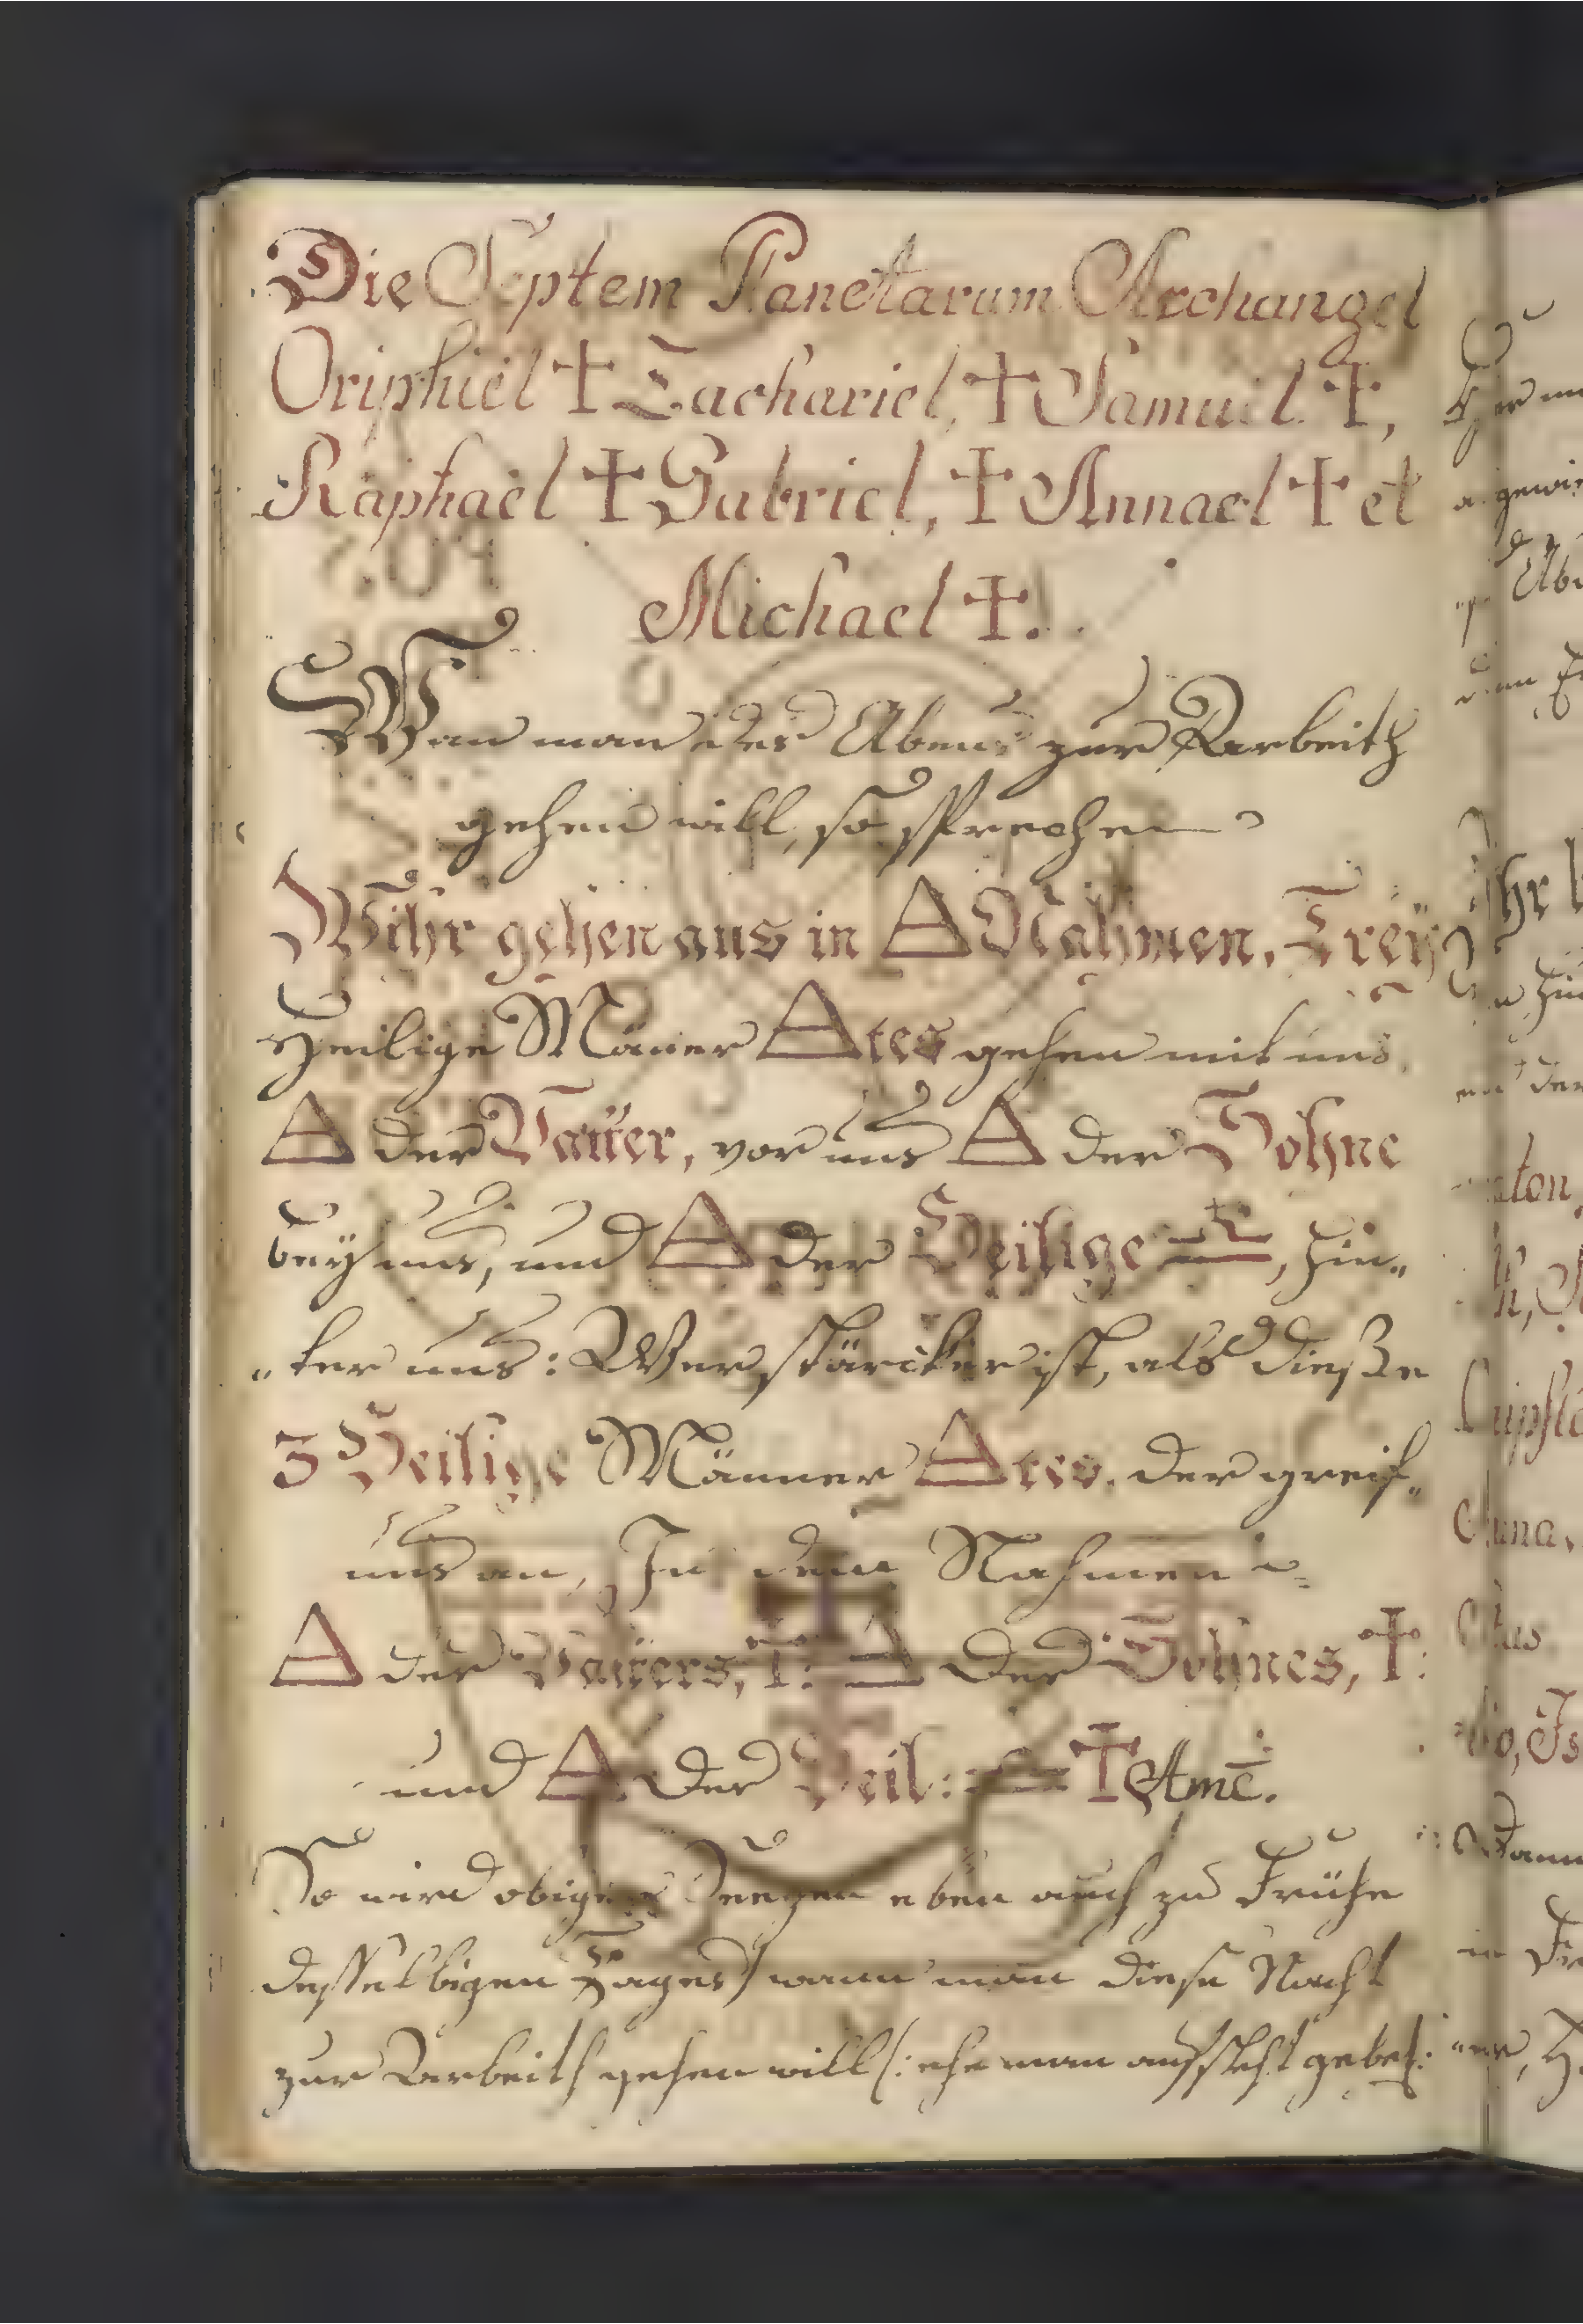 Die Septem Planetarum Archangel
Oriphiel † Zachariel, † Samuel †,
Raphael † Gabriel, † Annael † et
Michael †.
Wan man des Abends zur Arbeith
gehen will, so sprechen
Wihr gehen aus in △ Nahmen, Treÿ
Heilige Mäner △tes gehen mit uns,
△ der Vatter, vor uns △ der Sohne
beÿ uns, und △ der Heilige, hin„
„ter uns: Wer stärcker ist, als dießze
3 Heilige Männer △tes, der greif„
uns an, In dem Nahmen
△ der Vatters, †: △ der Sohnes, †:
und △ der Heil: † Ame̅.
So wird obiger Seegen eben auch zu Frühe
desselbigen Tages wann man diese Nacht
zur Arbeith gehen will (: ehe man aufsteht gebet:
Ihr